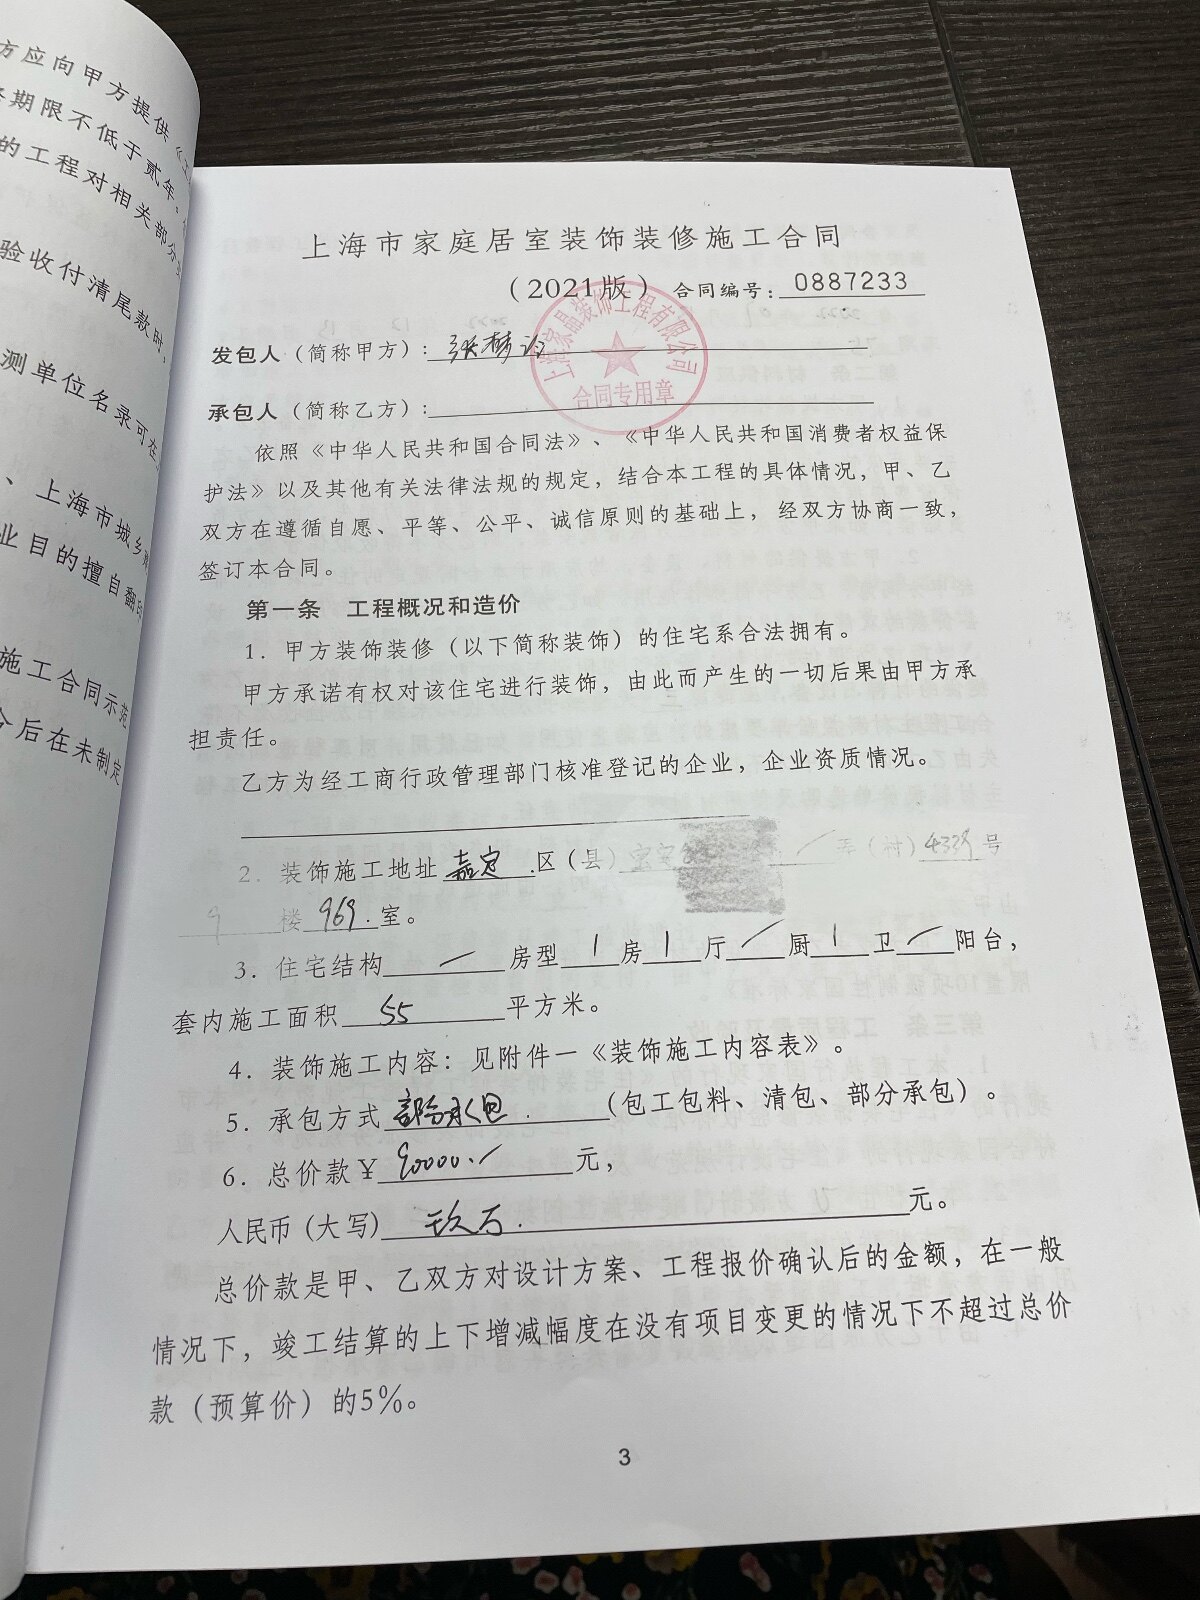 方应向甲方提供《
期限不低于贰年。
的工程对相关部分
验收付清尾款时，
测单位名录可在
、上海市城乡
业目的擅自翻
施工合同示范
后在未制定
上海市家庭居室装饰装修施工合同
（2021版）合同编号：0887233
发包人（简称甲方）：张梦
上海家晶装饰工程有限公司
合同专用章
承包人（简称乙方）：
依照《中华人民共和国合同法》、《中华人民共和国消费者权益保
护法》以及其他有关法律法规的规定，结合本工程的具体情况，甲、乙
双方在遵循自愿、平等、公平、诚信原则的基础上，经双方协商一致，
签订本合同。
第一条 工程概况和造价
1．甲方装饰装修（以下简称装饰）的住宅系合法拥有。
甲方承诺有权对该住宅进行装饰，由此而产生的一切后果由甲方承
担责任。
乙方为经工商行政管理部门核准登记的企业，企业资质情况。
2．装饰施工地址嘉定．区（县）宝安 / 弄（村）4339号
9 楼 969．室。
3．住宅结构 / 房型 1 房 1 厅 / 厨 1 卫 / 阳台，
套内施工面积 55 平方米。
4．装饰施工内容：见附件一《装饰施工内容表》。
5．承包方式 部分承包．（包工包料、清包、部分承包）。
6．总价款￥90000./ 元，
人民币（大写）玖万．元。
总价款是甲、乙双方对设计方案、工程报价确认后的金额，在一般
情况下，竣工结算的上下增减幅度在没有项目变更的情况下不超过总价
款（预算价）的5%。
3